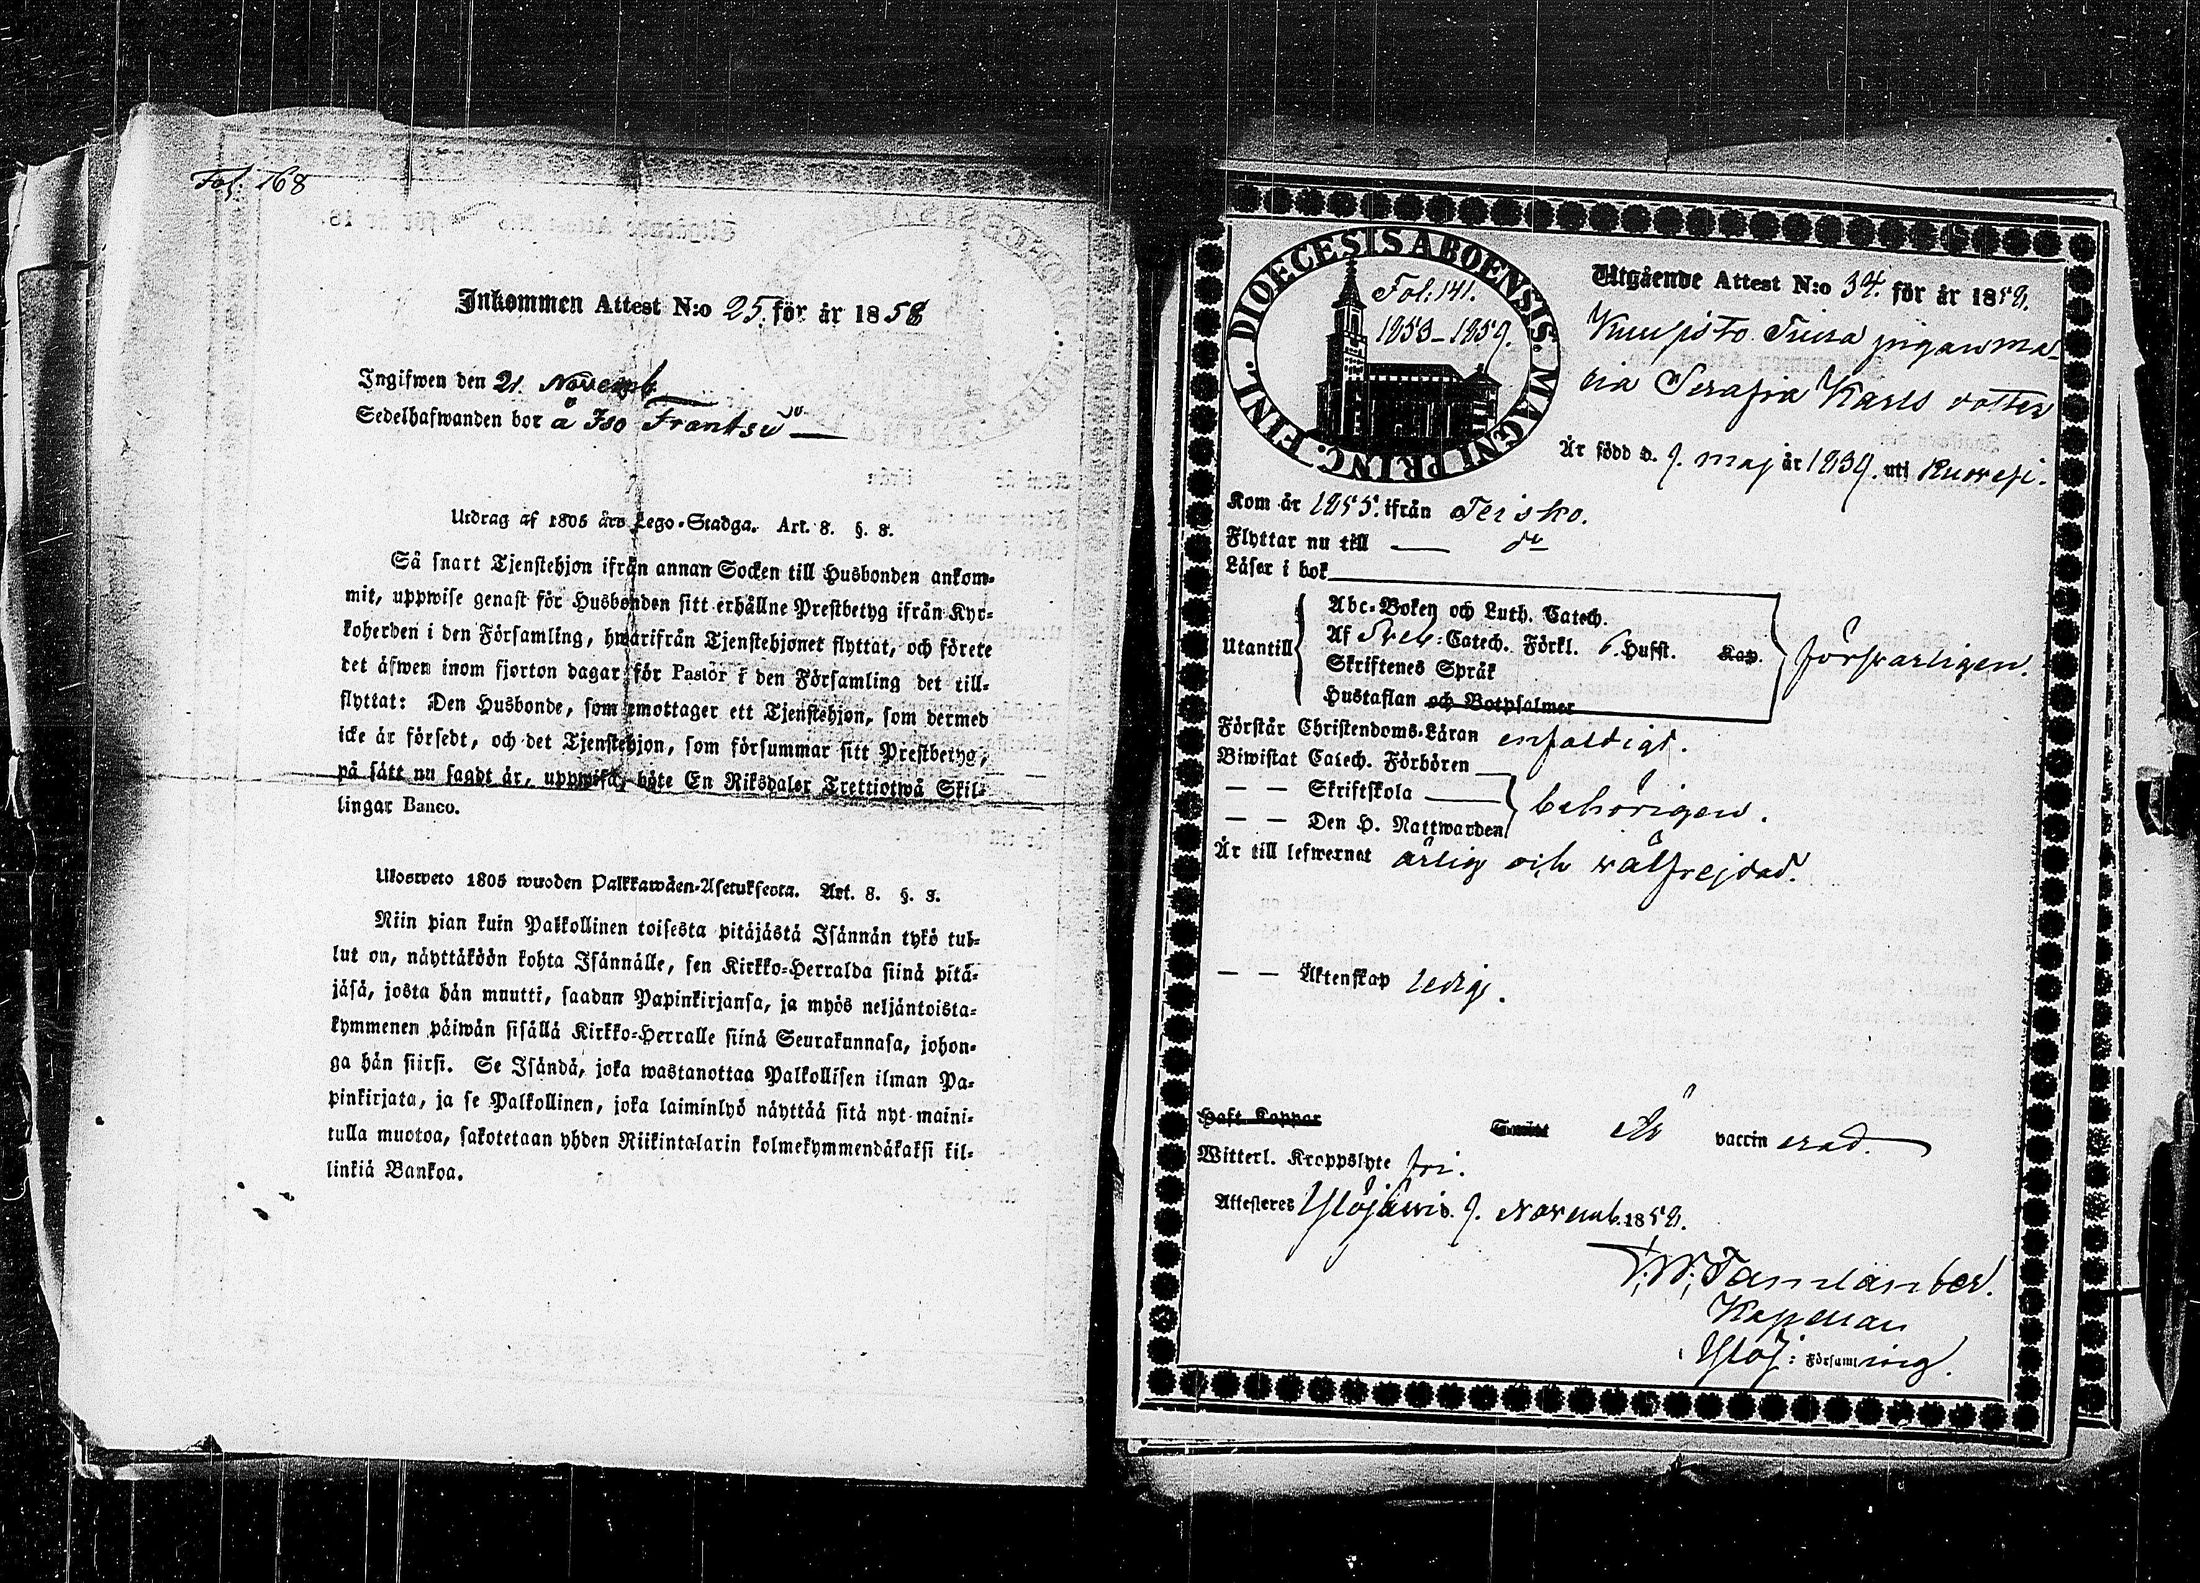 Fol. 168
Inkommen Attest N:o 25. för år 1858
Ingifwen den 21. Novemb.
Sedelhafwanden bor å Iso Frantsu
Utdrag af 1805 års Lego-Stadga. Art. 8. §. 3.
Så snart Tjenstehjon ifrån annan Socken till Husbonden ankom-
mit, uppwise genast för Husbonden sitt erhållne Prestbetyg ifrån Kyr-
koherden i den Församling, hwarifrån Tjenstehjonet flyttat, och förete
det äfwen inom fjorton dagar för Pastor i den Församling det till-
flyttat: Den Husbonde, som emottager ett Tjenstehjon, som dermed
icke är försedt, och det Tjenstehjon, som försummar sitt Prestbetyg,
på sätt nu sagdt är, uppwisa, böte En Riksdaler Trettiotwå Skil-
lingar Banco.
Ulosweto 1805 wuoden Palkkawäen-Asetuksesta. Art. 8. §. 3.
Niin pian kuin Palkollinen toisesta pitäjästä Isännän tykö tul-
lut on, näyttäköön kohta Isännälle, sen Kirkko-Herralda siinä pitä-
jäsä, josta hän muutti, saadun Papinkirjansa, ja myös neljäntoista-
kymmenen päiwän sisällä Kirkko-Herralle siinä Seurakunnasa, johon-
ga hän siirsi. Se Isändä, joka wastanottaa Palkollisen ilman Pa-
pinkirjata, ja se Palkollinen, joka laiminlyö näyttää sitä nyt maini-
tulla muotoa, sakotetaan yhden Riikintalarin kolmekymmendäkaksi kil-
linkiä Bankoa.
DIOECESIS ABOENSIS. MAGNI PRINC. FINL.
Fol: 141.
1853-1859.
Utgående Attest N:o 34. för år 1858.
pigan Ma-
ria Serafia Karls dotter
Är född d. 9. maj år 1839. uti Ruovesi.
Kom år 1855. ifrån Terisko.
Flyttar nu till — do
Läser i bok
Utantill
Abc-Boken och Luth. Catech.
Af Sveb: Catech. Förkl. 6. Hufst. Kap.
Skriftenes Språk
Hustaflan och Botpsalmer
försvarligen.
Förstår Christendoms-Läran enfaldigt.
Biwistat Catech. Förhören
— — Skriftskola
— — Den H. Nattwarden
behörigen.
Är till lefwernet ärlig och välfrejdad.
— — Äktenskap ledig.
Haft Koppor Är vaccinerad.
Witterl. Kroppslyte fri.
Attesteres Ylöjärvi d. 9. Novemb. 1858.
Kapellan
Ylöj: Församling.